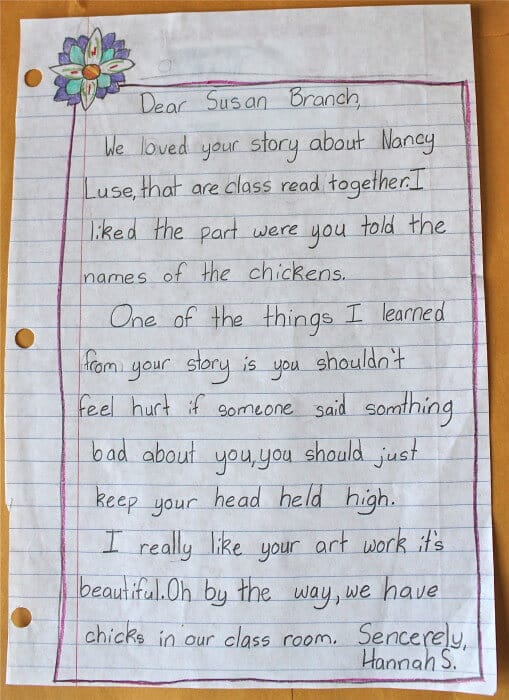 Dear Susan Branch,
We loved your story about Nancy
Luse, that are class read together. I
liked the part were you told the
names of the chickens.
One of the things I learned
from your story is you shouldn't
feel hurt if someone said somthing
bad about you, you should just
keep your head held high.
I really like your art work it's
beautiful. Oh by the way, we have
chicks in our class room. Sencerely,
Hannah S.